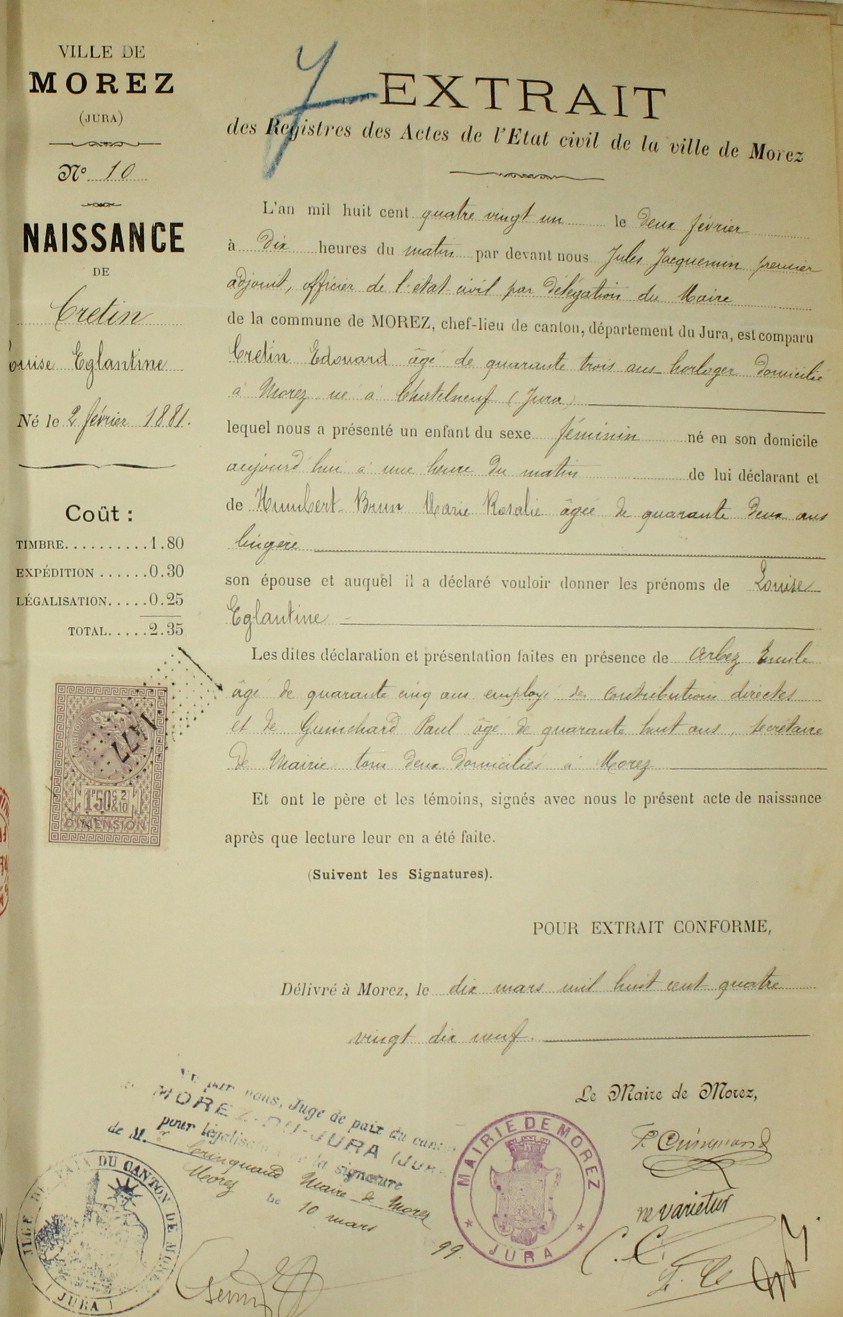 VILLE DE
MOREZ
(JURA)
N° 10
NAISSANCE
DE
Cretin
Louise Eglantine
Né le 2 février 1881.
Coût :
TIMBRE..........1.80
EXPÉDITION ......0.30
LÉGALISATION.....0.25
TOTAL.....2.35
1177
1F50c 2/10
DIMENSION
EXTRAIT
des Registres des Actes de l'Etat civil de la ville de Morez
L'an mil huit cent quatre vingt un le deux février
à dix heures du matin par devant nous Jules Jacquemin premier
adjoint, officier de l'état civil par délégation du Maire
de la commune de MOREZ, chef-lieu de canton, département du Jura, est comparu
Cretin Edouard âgé de quarante trois ans horloger domicilié
à Morez né à Chatelneuf (Jura)
lequel nous a présenté un enfant du sexe féminin né en son domicile
aujourd'hui à une heure du matin de lui déclarant et
de Humbert-Brun Marie Rosalie âgée de quarante deux ans
lingère
son épouse et auquel il a déclaré vouloir donner les prénoms de Louise
Eglantine
Les dites déclaration et présentation faites en présence de Arbez Emile
âgé de quarante cinq ans employé des contributions directes
et de Guinchard Paul âgé de quarante huit ans, secrétaire
de Mairie tous deux domiciliés à Morez
Et ont le père et les témoins, signés avec nous le présent acte de naissance
après que lecture leur en a été faite.
(Suivent les Signatures).
POUR EXTRAIT CONFORME,
Délivré à Morez, le dix mars mil huit cent quatre
vingt dix neuf.
Le Maire de Morez,
ne varietur
Vu par nous, Juge de paix du canton
MOREZ-DU-JURA (JURA
pour légalisation de la signature
de M. Maire de Morez
Morez le 10 mars 99
MAIRIE DE MOREZ
JURA
DE PAIX DU CANTON DE MOREZ
(JURA)